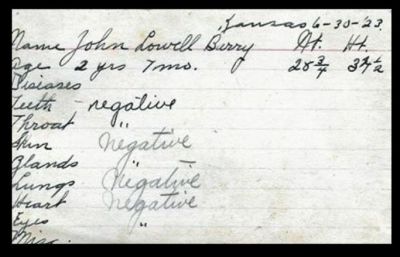 Kansas 6-30-23.
Name John Lowell Berry Wt. Ht.
Age 2 yrs 7 mo. 28 3/4 34 1/2
Diseases
Teeth - negative
Throat "
Skin Negative
Glands
Lungs Negative
Heart Negative
Eyes "
Misc.